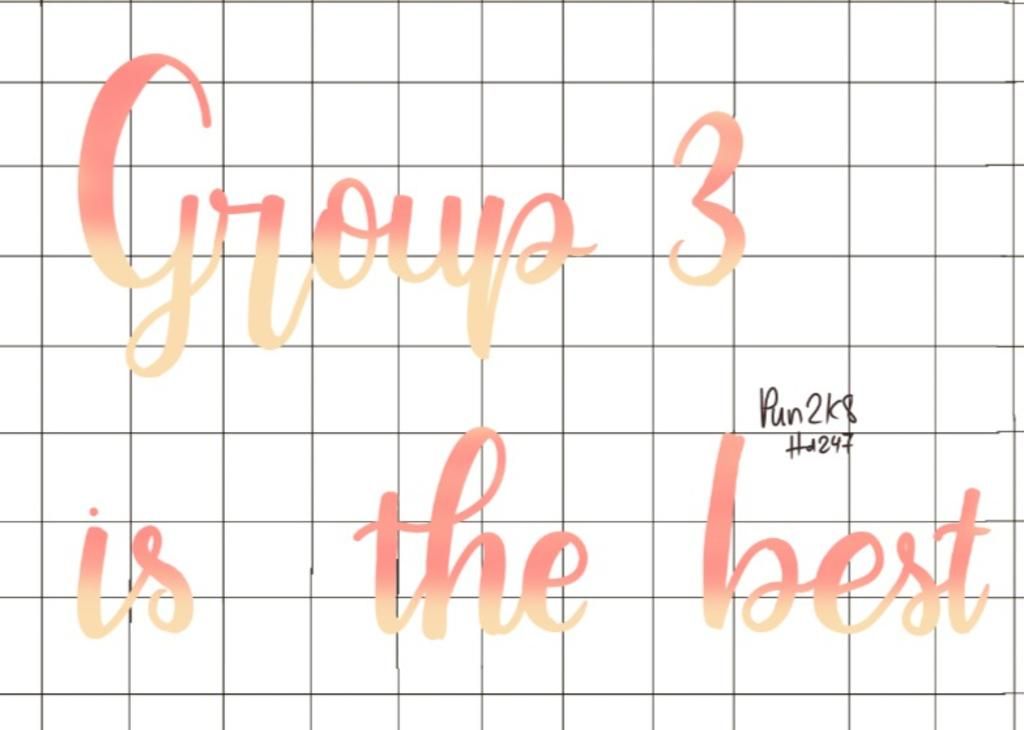 Group 3
Pun2k8
Hd247
is the best